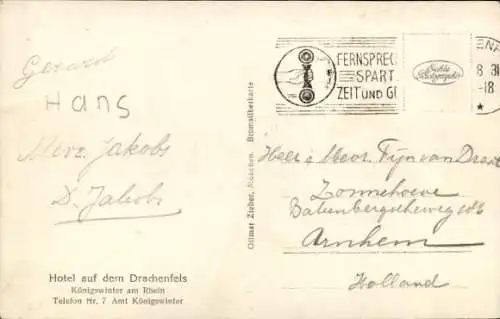 Gerard
Hans
Mevr. Jakobs
D. Jakobs
Hotel auf dem Drachenfels
Königswinter am Rhein
Telefon Nr. 7 Amt Königswinter
Ottmar Zieher, München. Bromsilberkarte
FERNSPREC
SPART
ZEIT UND G
8 31
-18
Heer & Mevr. Fijn van Draat
Zonnehoeve
Arnhem
Holland